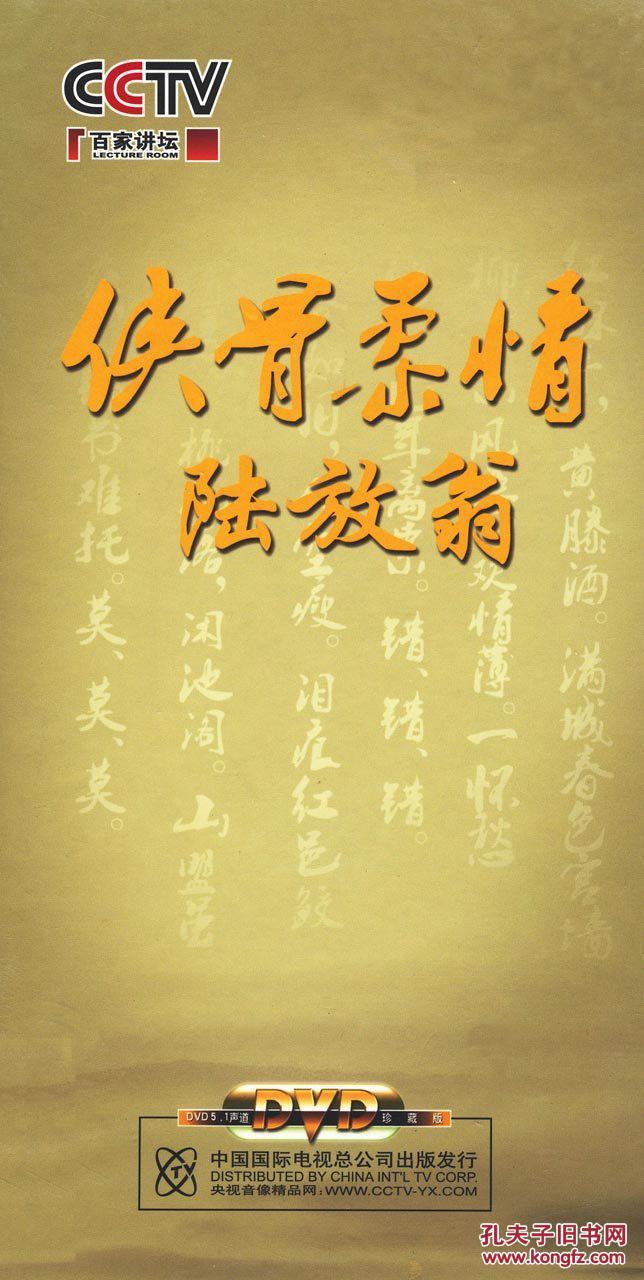 CCTV
百家讲坛
LECTURE ROOM
侠骨柔情
陆放翁
黄滕酒。满城春色宫墙
欢情薄。一怀愁
离索。错、错、错。
空瘦。泪痕红邑鲛
闲池阁。山盟虽
书难托。莫、莫、莫。
DVD 5.1声道
DVD
珍藏版
中国国际电视总公司出版发行
DISTRIBUTED BY CHINA INT'L TV CORP.
央视音像精品网:WWW.CCTV-YX.COM
孔夫子旧书网
www.kongfz.com